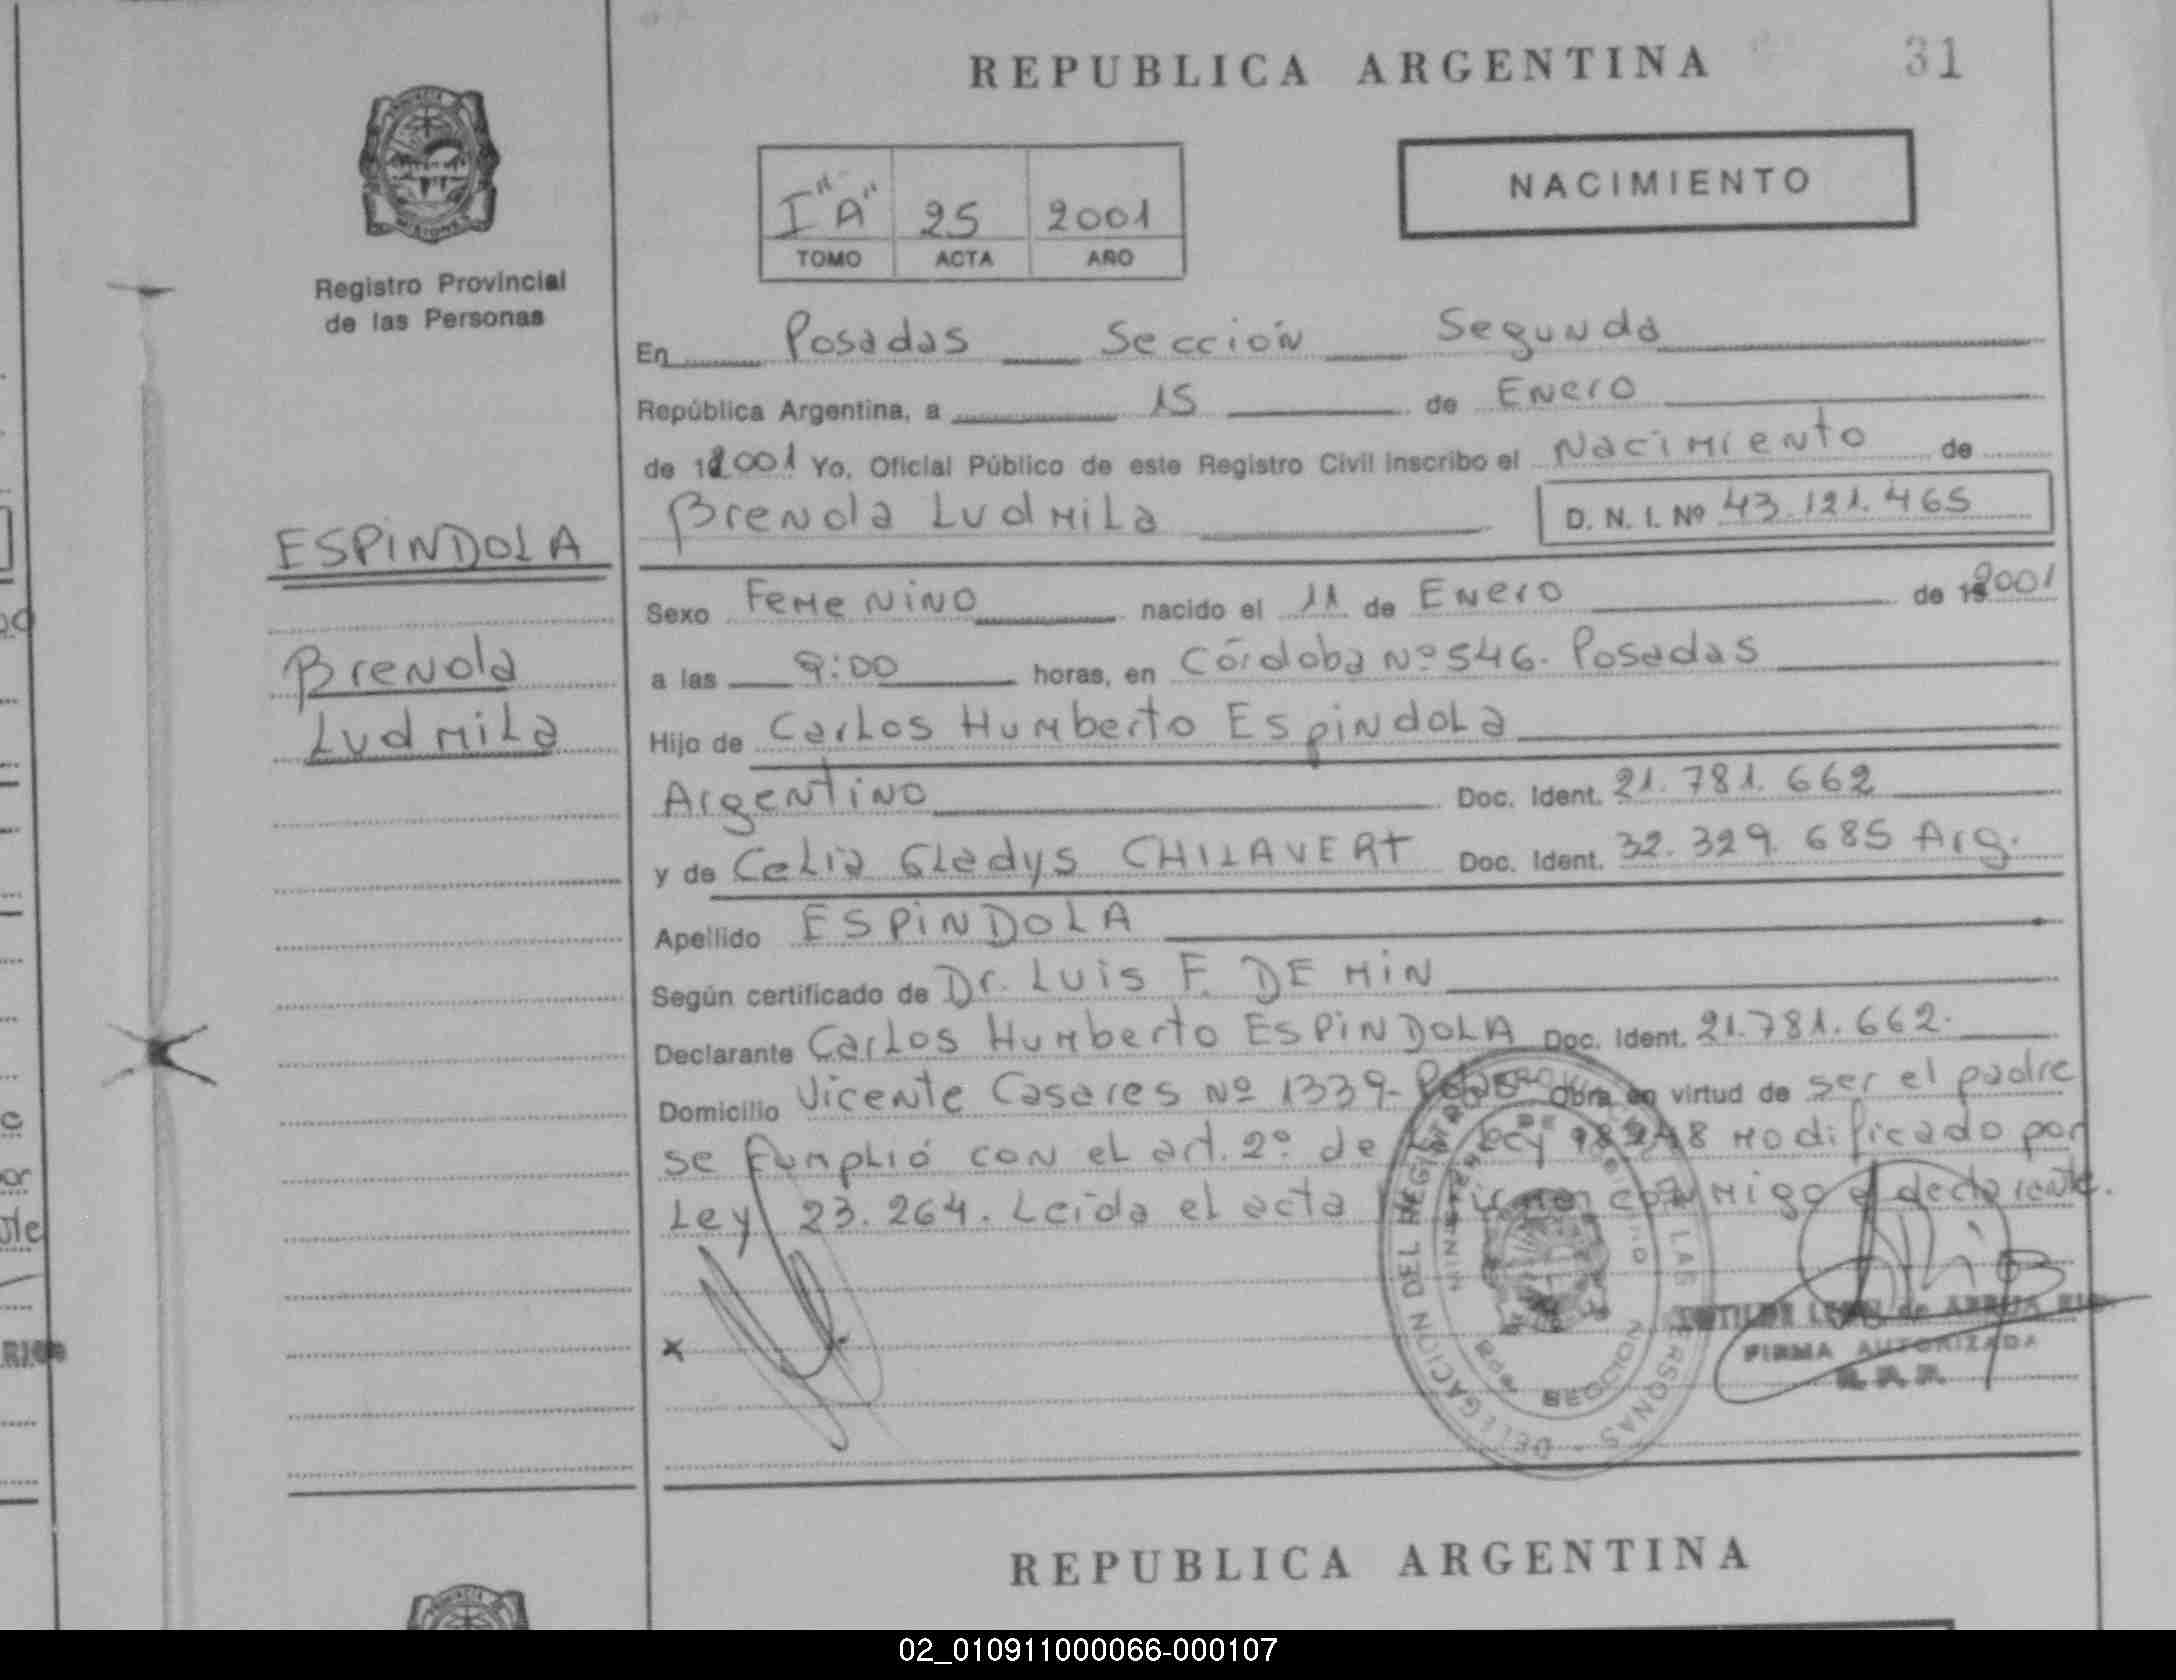 REPUBLICA ARGENTINA
31
NACIMIENTO
I "A" 25 2001
TOMO ACTA AÑO
Registro Provincial
de las Personas
En Posadas Sección Segunda
República Argentina, a 15 de Enero
de 2001 Yo, Oficial Público de este Registro Civil inscribo el Nacimiento de
Brenda Ludmila D. N. I. Nº 43.121.465
ESPINDOLA
Brenda
Ludmila
Sexo Femenino nacido el 11 de Enero de 2001
a las 9:00 horas, en Córdoba Nº 546. Posadas
Hijo de Carlos Humberto Espindola
Argentino Doc. Ident. 21.781.662
y de Celia Gladys CHILAVERT Doc. Ident. 32.329.685 Arg.
Apellido ESPINDOLA
Según certificado de Dr. Luis F. DE MIN
Declarante Carlos Humberto ESPINDOLA Doc. Ident. 21.781.662.
Domicilio Vicente Casares Nº 1339- Pdas Obra en virtud de ser el padre
se cumplió con el art. 2º de Ley 18248 modificado por
Ley 23.264. Leída el acta firman conmigo el declarante.
x
DELEGACION DEL REGISTRO LAS PERSONAS
FIRMA AUTORIZADA
REPUBLICA ARGENTINA
02_010911000066-000107